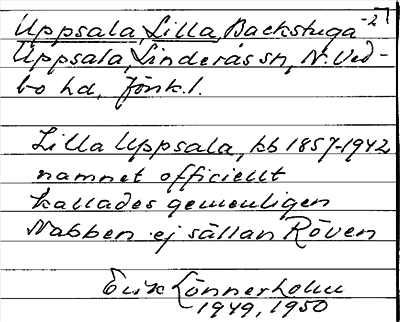 Uppsala, Lilla, Backstuga -27
Uppsala, Linderås sn, N. Ved-
bo hd, Jönk. l.
Lilla Uppsala, kb 1857-1942
namnet officiellt
kallades gemenligen
Nabben ej sällan Röven
Erik Lönnerholm
1949, 1950